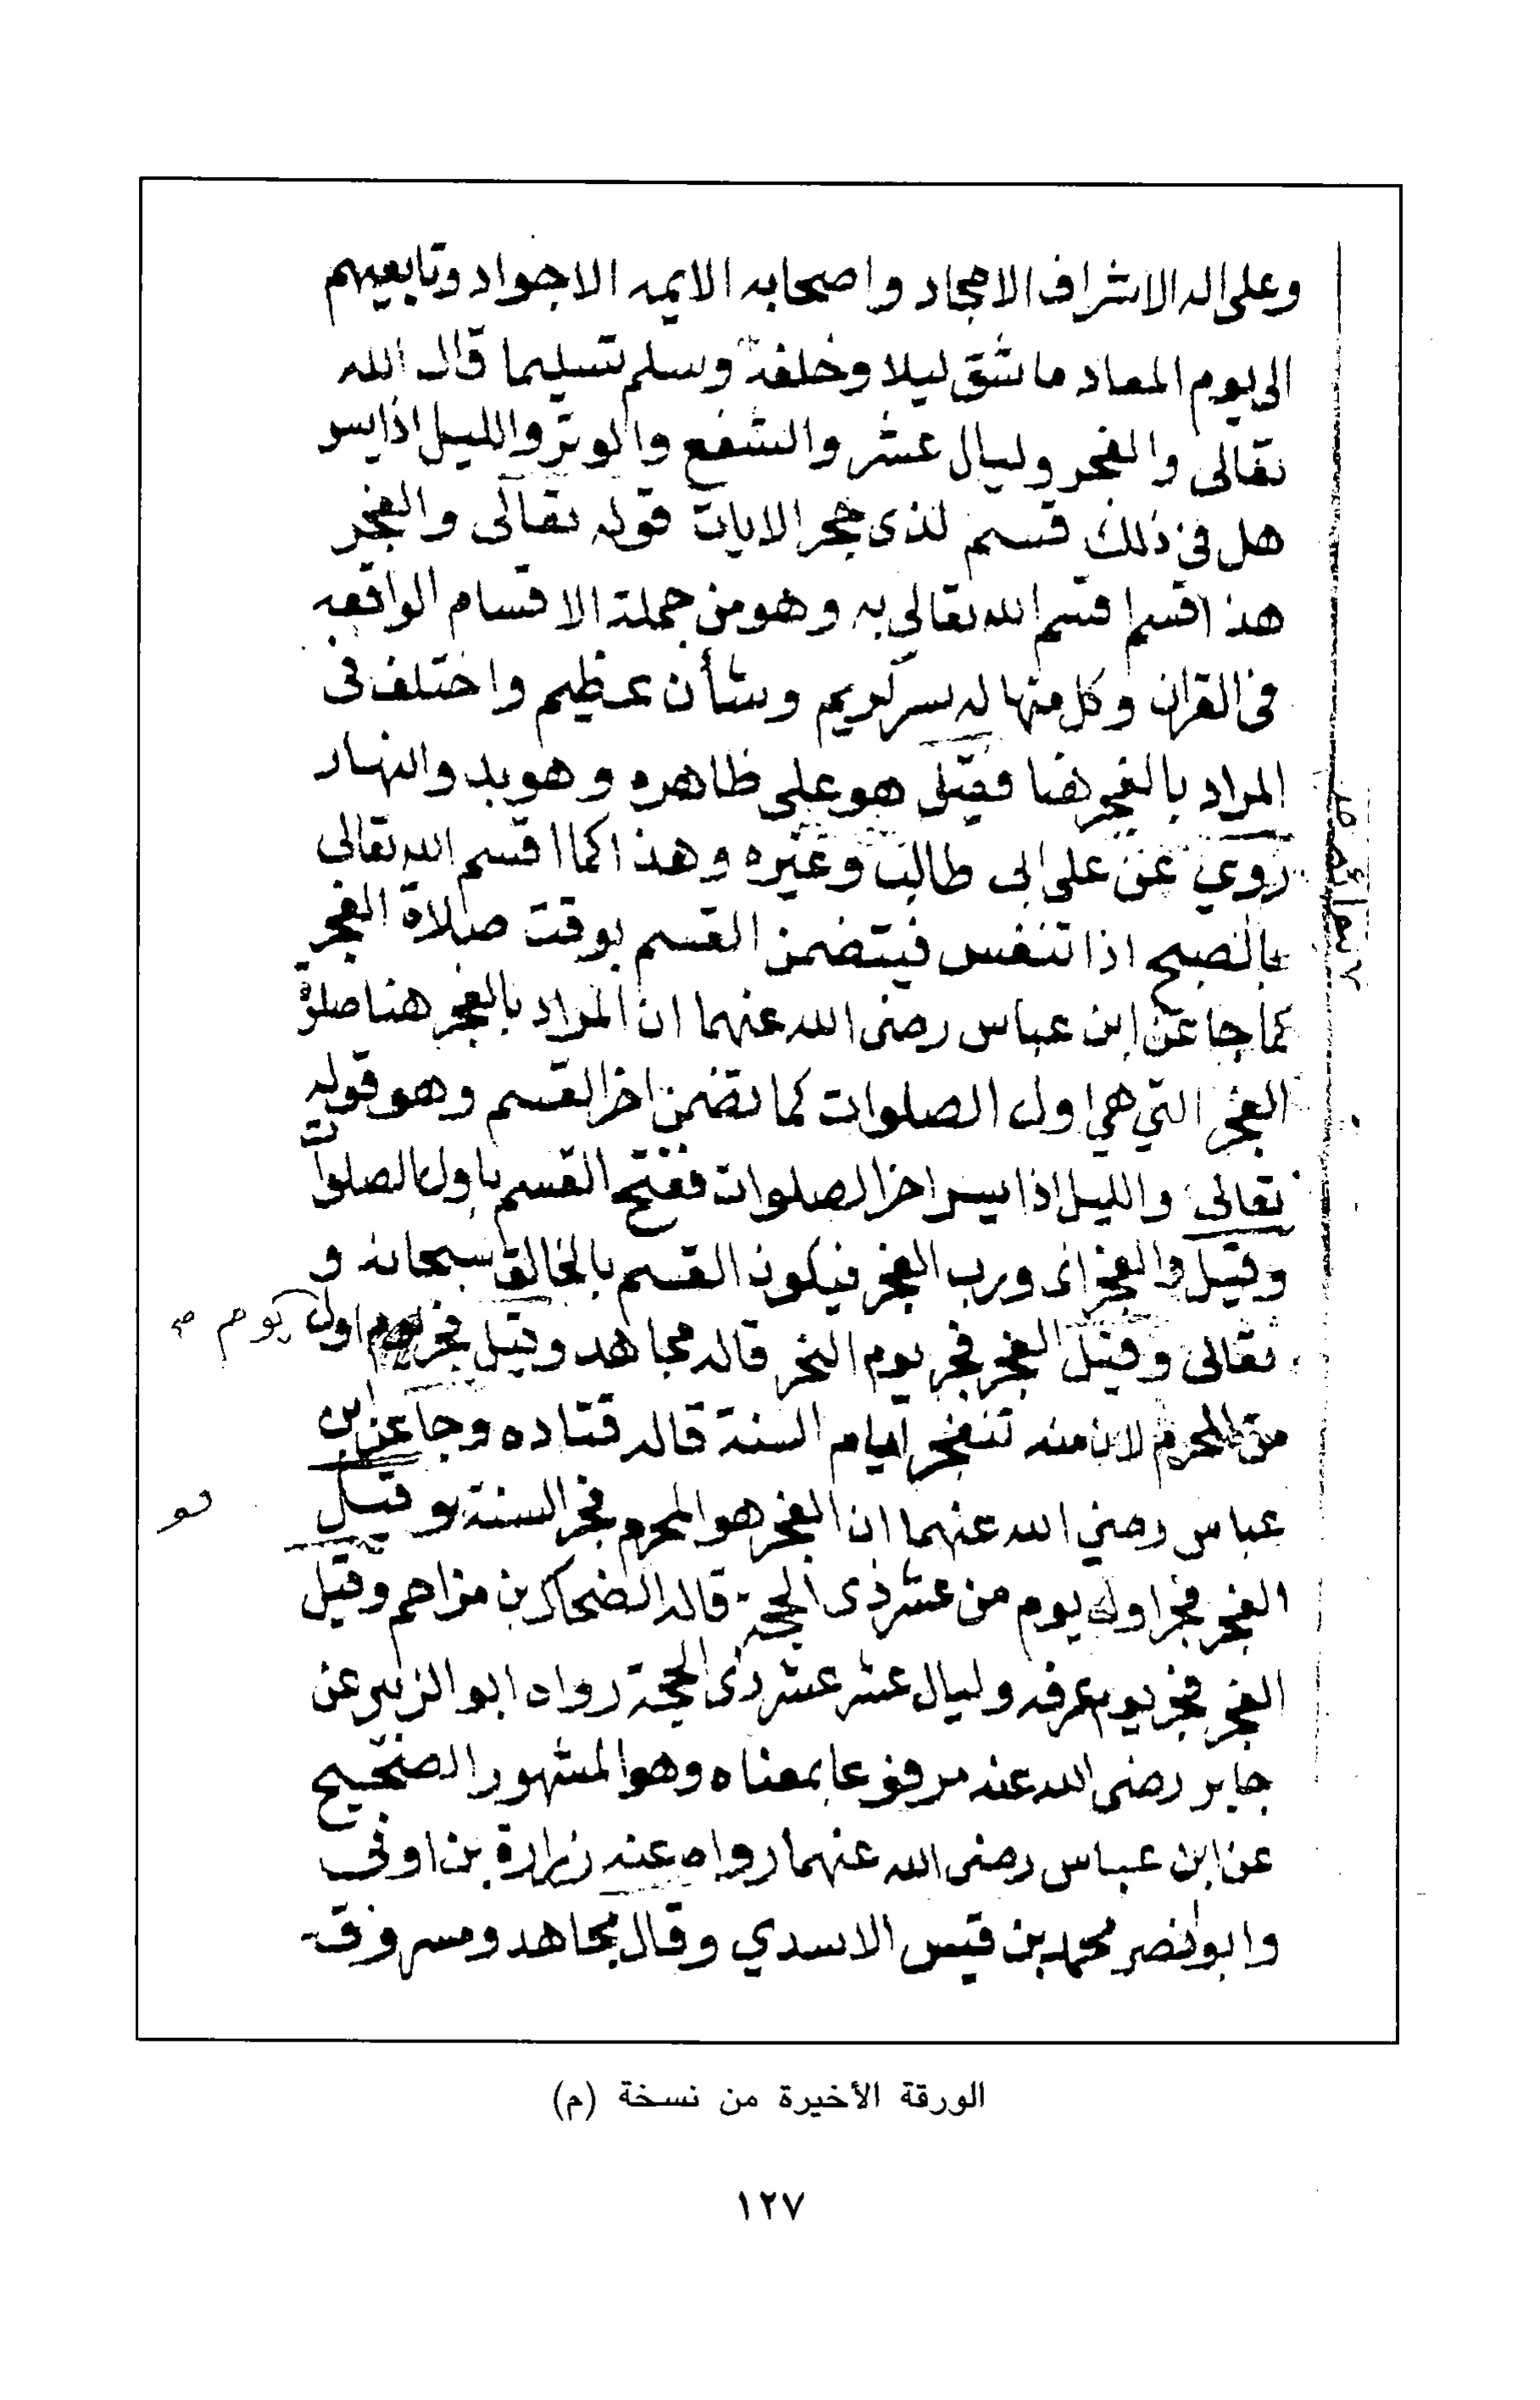 وعلى اله الاشراف الامجاد واصحابه الايمه الاجواد وتابعيهم
الى يوم المعاد ما شق ليلا وخلفة وسلم تسليما قال الله
تعالى والفجر وليال عشر والشفع والوتر والليل اذا يسر
هل في ذلك قسم لذى حجر الايات قوله تعالى والفجر
هذا قسم اقسم الله تعالى به وهو من جملة الاقسام الواقعه
في القران وكل منها له سر كريم وشأن عظيم واختلف في
المراد بالفجر هنا فقيل هو على ظاهره وهو بدو النهار
روي عن على ابى طالب وغيره وهذا كما اقسم الله تعالى
بالصبح اذا تنفس فيتضمن القسم بوقت صلاة الفجر
كما جا عن ابن عباس رضى الله عنهما ان المراد بالفجر هنا صلوة
الفجر التي هي اول الصلوات كما تضمن اخر القسم وهو قوله
تعالى والليل اذا يسر اخر الصلوات ففتح القسم باول الصلوات
وقيل والفجر اى ورب الفجر فيكون القسم بالخالق سبحانه و
تعالى وقيل الفجر فجر يوم النحر قاله مجاهد وقيل فجر اول يوم صح
من المحرم لان منه تنفجر ايام السنة قاله قتاده وجا عن ابن
عباس رضي الله عنهما ان الفجر هو المحرم فجر السنة وقيل
الفجر فجر اول يوم من عشر ذى الحجة قاله الضحاك بن مزاحم وقيل
الفجر فجر يوم عرفه وليال عشر عشر ذى الحجة رواه ابو الزبير عن
جابر رضى الله عنه مرفوعا بمعناه وهو المشهور الصحيح
عن ابن عباس رضى الله عنهما رواه عنه زرارة بن اوفى
وابو نصر محمد بن قيس الاسدي وقال مجاهد ومسروق
الورقة الأخيرة من نسخة (م)
١٢٧